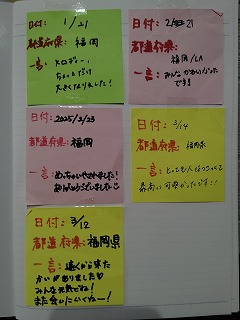 日付: 1/21
都道府県: 福岡
一言: メロディー、
ちょっとだけ
大きくなりました!
日付: 21
都道府県:
福岡/LA
一言: みんなかわいかった
です!
日付: 2025/2/23
都道府県: 福岡
一言: めっちゃいやされました!
ありがとうございました
日付: 3/14
都道府県: 福岡県
一言: とっても人なつっこくて
最高に可愛かったです!!
日付: 3/12
都道府県: 福岡県
一言: 遠くから来た
かいがありました♡
みんな元気でね!
また会いにいくねー!